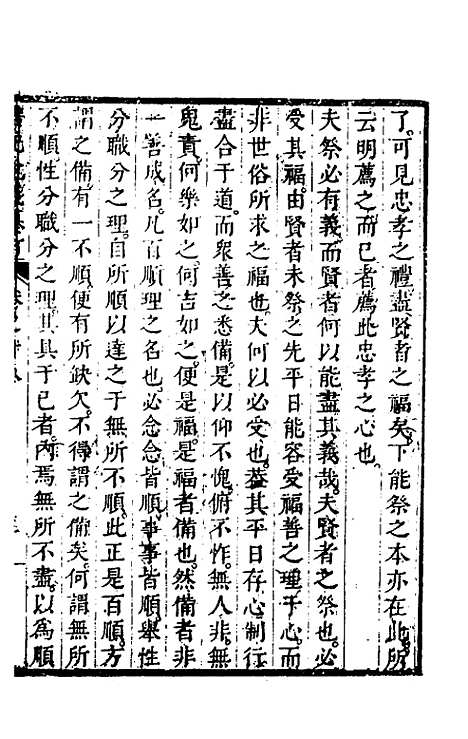 了可見忠孝之禮盡賢者之福矣下能祭之本亦在此所
云明薦之而已者薦此忠孝之心也
夫祭必有義而賢者何以能盡其義哉夫賢者之祭也必
受其福由賢者未祭之先平日能容受福善之理于心而
非世俗所求之福也夫何以必受也蓋其平日存心制行
盡合于道而衆善之悉備是以仰不愧俯不怍無人非無
鬼責何樂如之何吉如之便是福是福者備也然備者非
一善成名凡百順理之名也必念念皆順事事皆順舉性
分職分之理自所順以達之于無所不順此正是百順方
謂之備有一不順便有所缺欠不得謂之備矣何謂無所
不順性分職分之理其具于已者內焉無所不盡以爲順